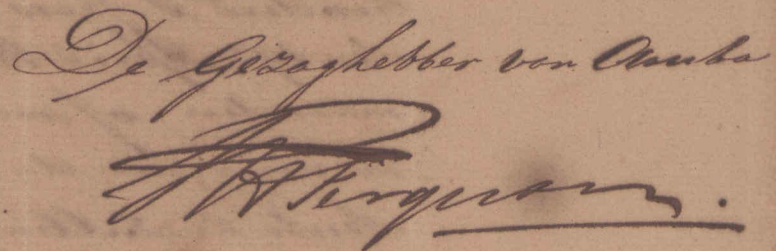 De Gezaghebber van Aruba
JHFerguson.